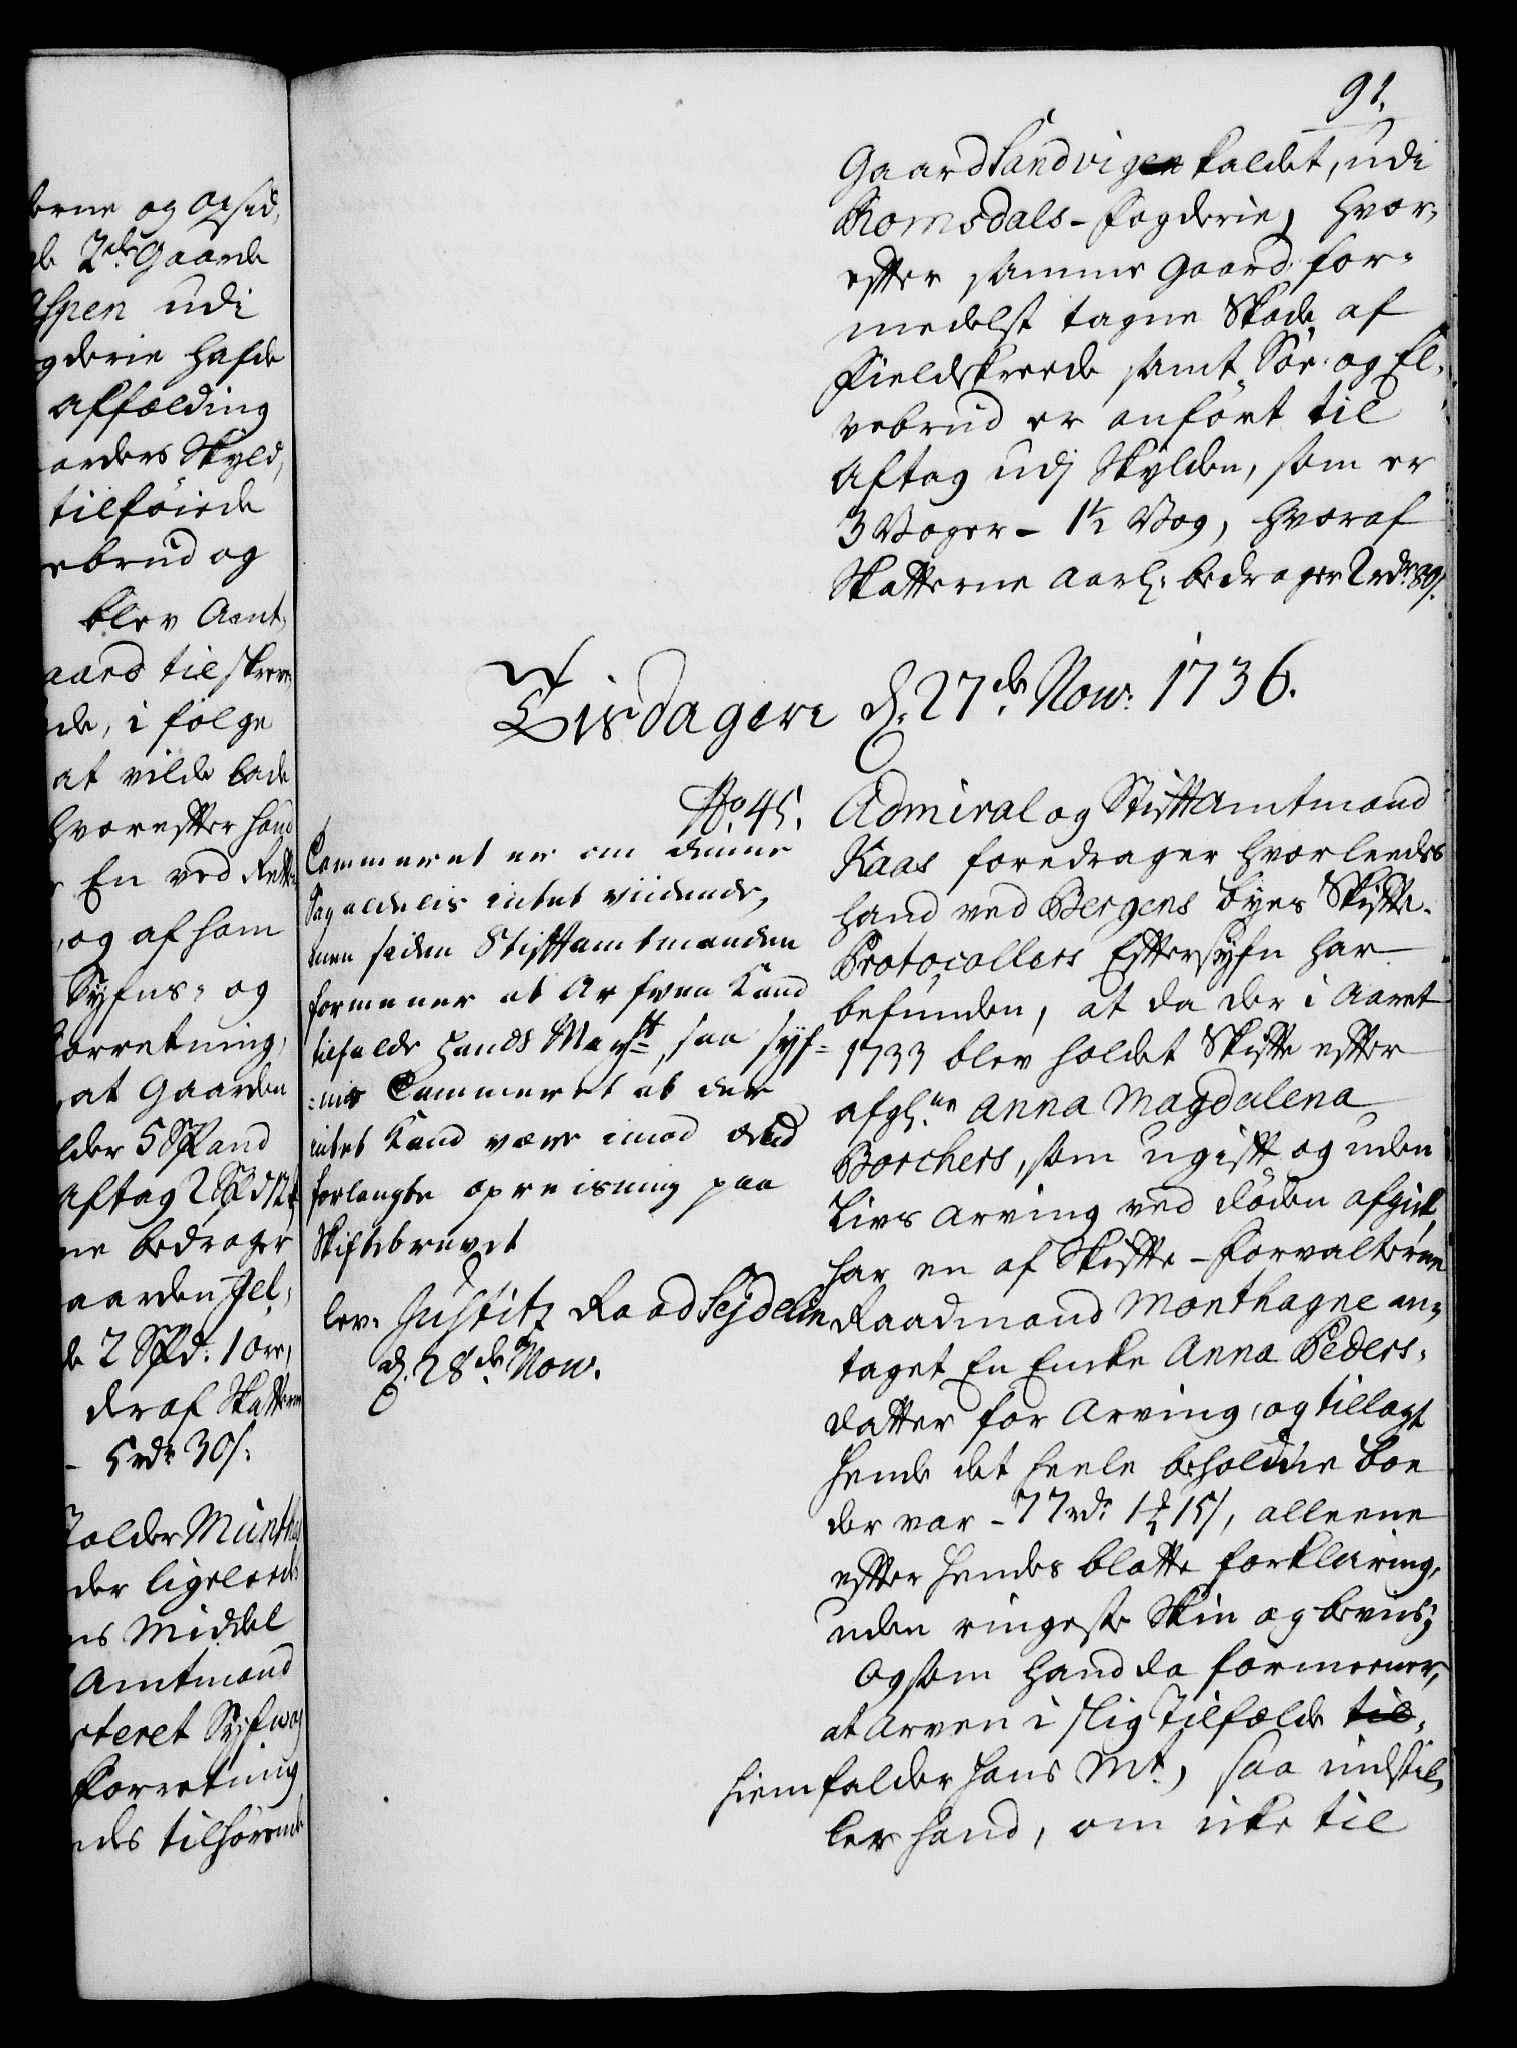 erne og og sid,
de 2de Gaarde
Aspen udi
gderie hafde
affælding
aarders Skyld,
tilføiede
ebrud og
blev Amt,
aard tilskrev
de, i følge
at vilde lade
hvorefter hand
En ved Rett
og af ham
Syfns- og
forretning,
at Gaarden
lder 5 Spand
aftag 2 Spd 12
ne bedrager
aarden Jel,
de 2 Spd: 1 øre,
deraf Skatterne
- 5 rdr 30 s:
Tolder Munthe
der ligeleedes
ns Middel
Amtmand
steret Syfn og
forretning
ndes tilhørende
91.
Gaard Sandvigen kaldet, udi
Romsdals-fogderie, hvor,
efter samme Gaard for-
medelst tagne Skade af
Fieldskreede samt Søe- og El,
vebrud er anført til
Aftag udj Skylden, som er
3 Voger - 1½ Vog, hvoraf
Skatterne aarl: bedrager 2 rdr 89 s.
Tisdagen d. 27de Nov: 1736.
No. 45.
Cammeret er om denne
Sag aldelis intet viidende,
men siden Stifftamtmanden
formener at Arfven Kand
tilfalde Hands Mayst, saa syf=
=nis Cammeret at der
intet Kand være imod ved
forlangte opreisning paa
Skiftebrevet
lev. Justitz Raad Sejdelin
d. 28de Nov.
Admiral og Stiftamtmand
Kaas foredrager hvorleedes
hand ved Bergens byes Skifte-
Protocollers Eftersyfn har
befunden, at da der i Aaret
1733 blev holdet Skifte efter
afgl:ne Anna Magdalena
Borchers, som ugift og uden
Livs Arving ved døden afgick,
har en af Skifte-forvalterne
Raadmand Monthagne an,
taget En Encke Anna Peders,
datter for Arving, og tillagt
hende det heele beholdne boe
der var - 77 rdr 1 15 s, alleene
efter hendes blotte forklaring,
uden ringeste Skin og beviis;
Og som hand da formeener,
at Arven i slig Tilfælde til,
hiemfalder hans Mt, saa indstil,
ler hand, om icke til